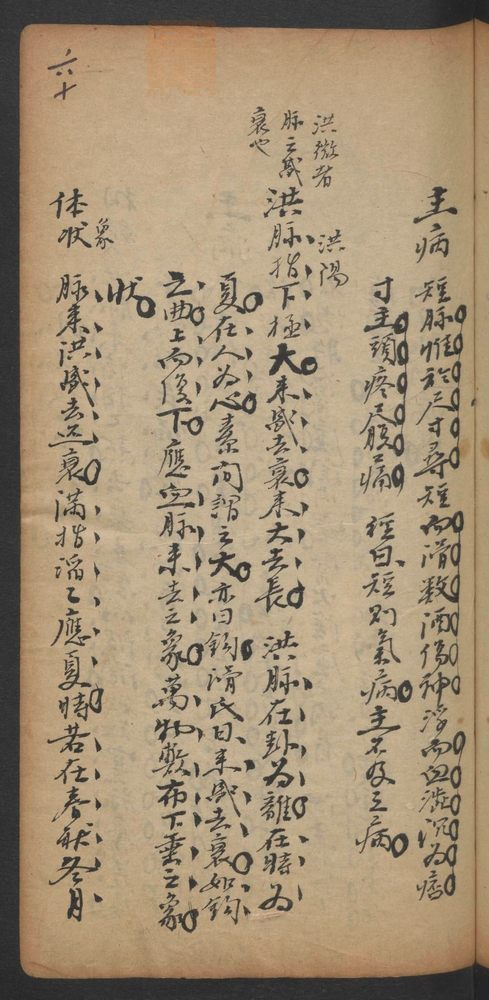 主病 短脉惟於尺寸尋短而滑数酒傷神浮而血澁沉為痞
寸主頭疼尺腹痛 經曰短則氣病主不及之病
洪微者
脉之盛
衰也
洪陽
洪脉指下極大来盛去衰来大去長 洪脉在卦為離在時為
夏在人為心素问謂之大亦曰鈎滑氏曰来盛去衰如鈎
之曲上而復下應血脉来去之象萬物敷布下垂之象
状
体状象 脉来洪盛去还衰滿指滔〻應夏時若在春秋冬月
六十